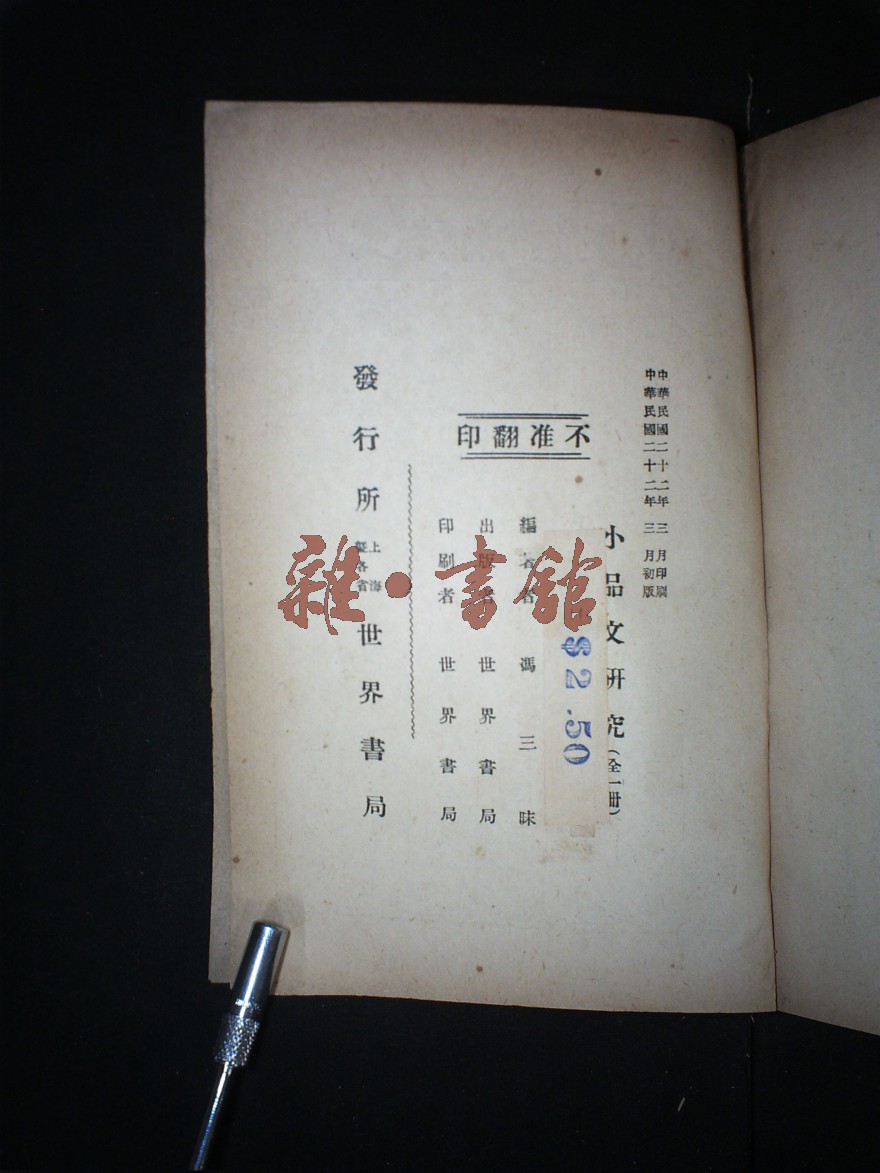 中華民國二十二年三月印刷
中華民國二十二年三月初版
小品文研究(全一冊)
$2.50
不准翻印
編著者 馮三昧
出版者 世界書局
印刷者 世界書局
發行所 上海曁各省 世界書局
雜·書館